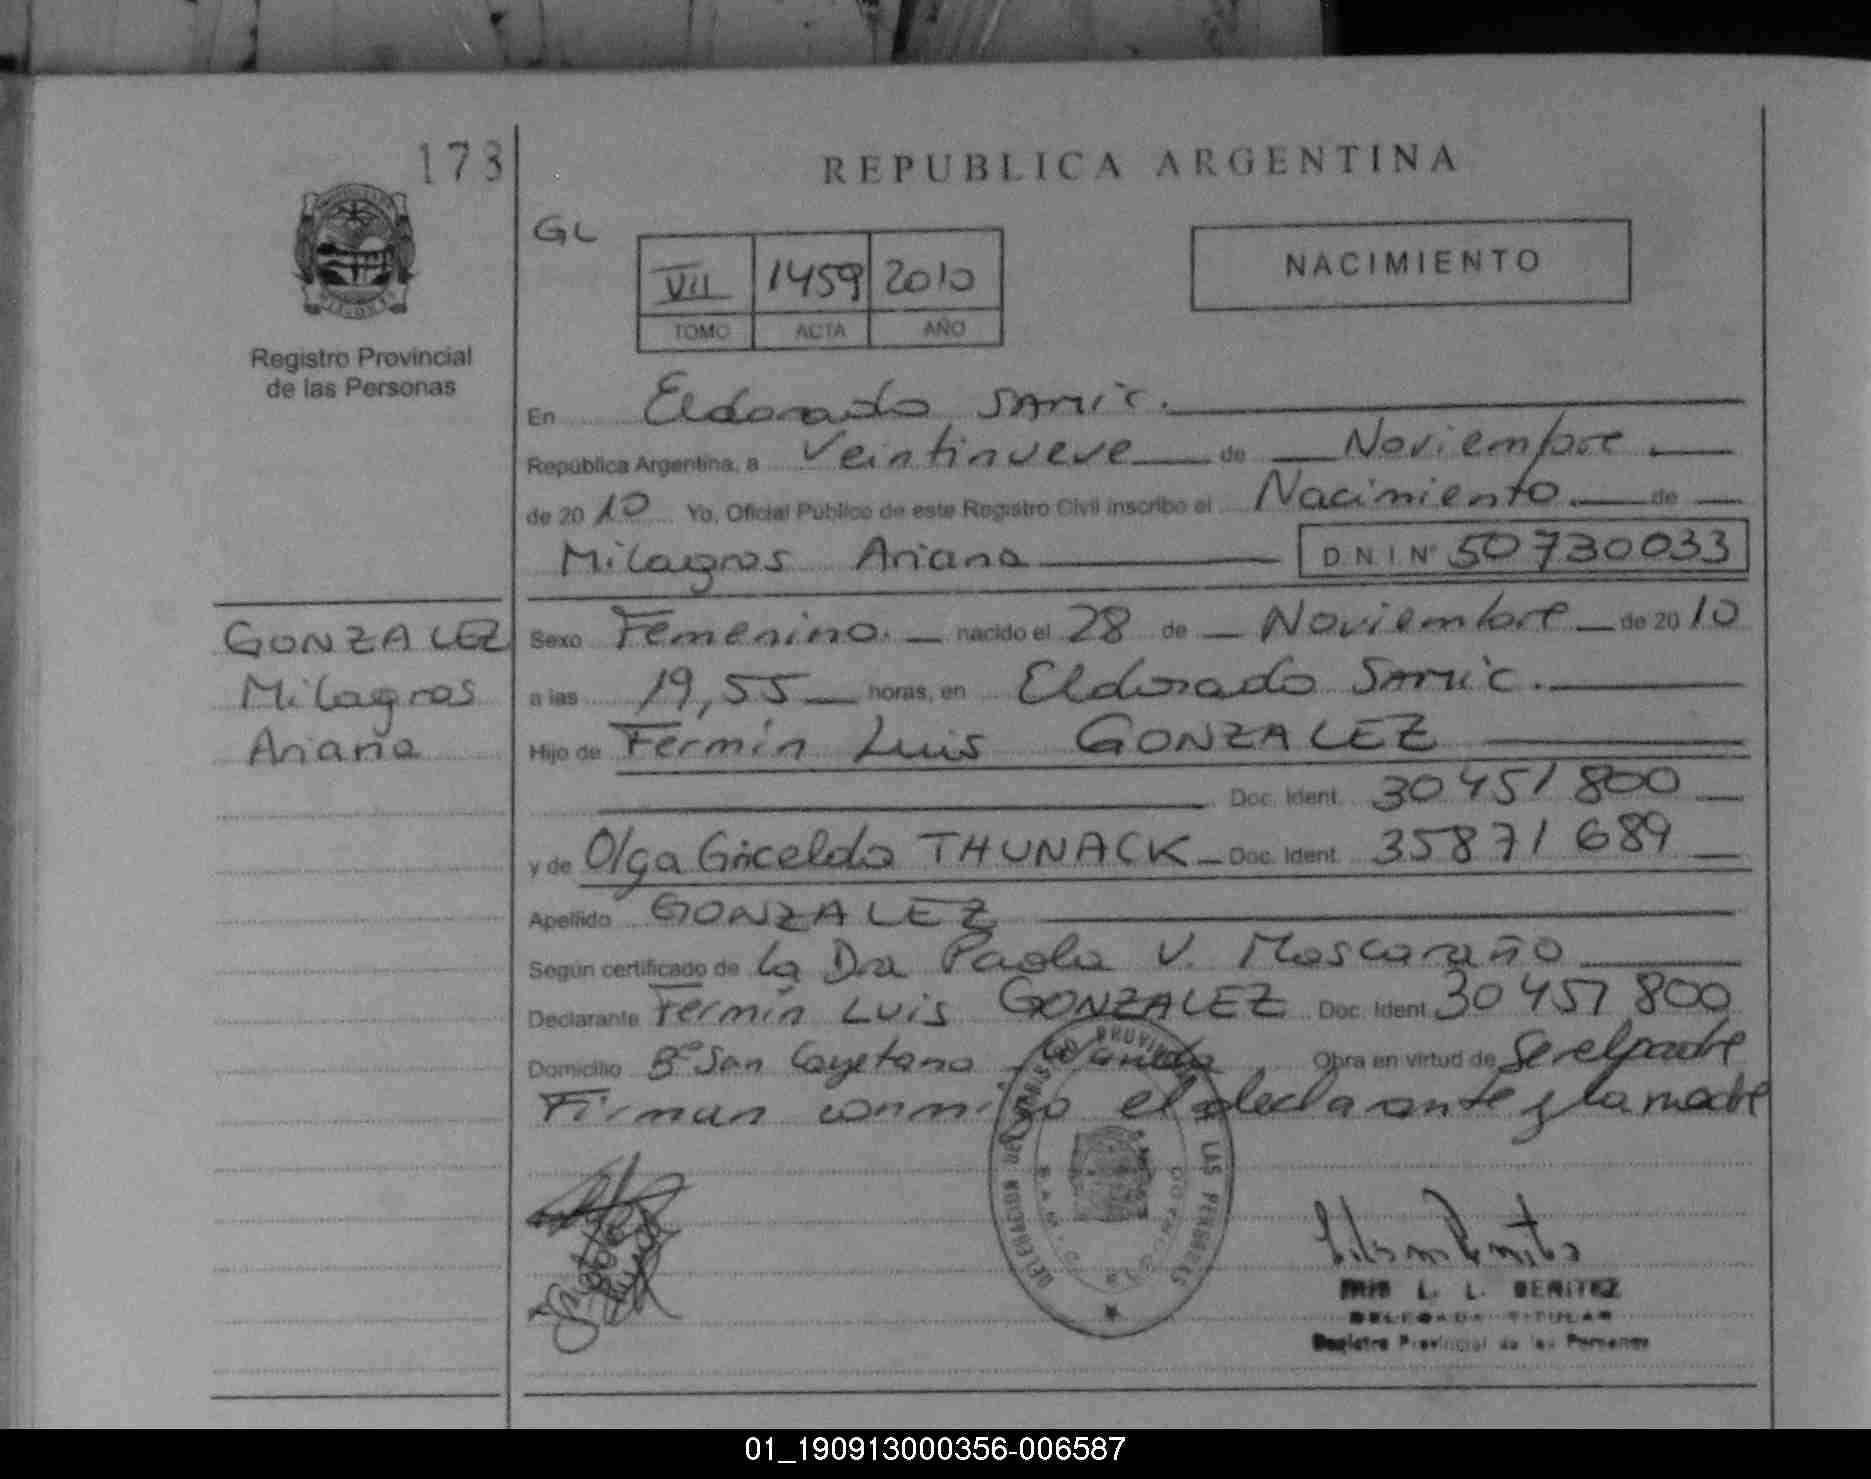 173
REPUBLICA ARGENTINA
GL
VII 1459 2010
TOMO ACTA AÑO
NACIMIENTO
Registro Provincial
de las Personas
En Eldorado SAMIC.
República Argentina, a Veintinueve de Noviembre
de 2010 Yo, Oficial Público de este Registro Civil inscribo el Nacimiento de
Milagros Ariana D.N.I. Nº 50730033
GONZALEZ
Milagros
Ariana
Sexo Femenino. nacido el 28 de Noviembre de 2010
a las 19,55 horas, en Eldorado SAMIC.
Hijo de Fermín Luis GONZALEZ
Doc. Ident. 30451800
y de Olga Griselda THUNACK Doc. Ident. 35871689
Apellido GONZALEZ
Según certificado de la Dra Paola V.
Declarante Fermín Luis GONZALEZ Doc. Ident. 30451800
Domicilio Bº San Cayetano Wanda Obra en virtud de Ser el padre
Firman conmigo el declarante y la madre
DELEGACION DEL REGISTRO PROVINCIAL DE LAS PERSONAS
L. L. BENITEZ
DELEGADA TITULAR
Registro Provincial de las Personas
01_190913000356-006587